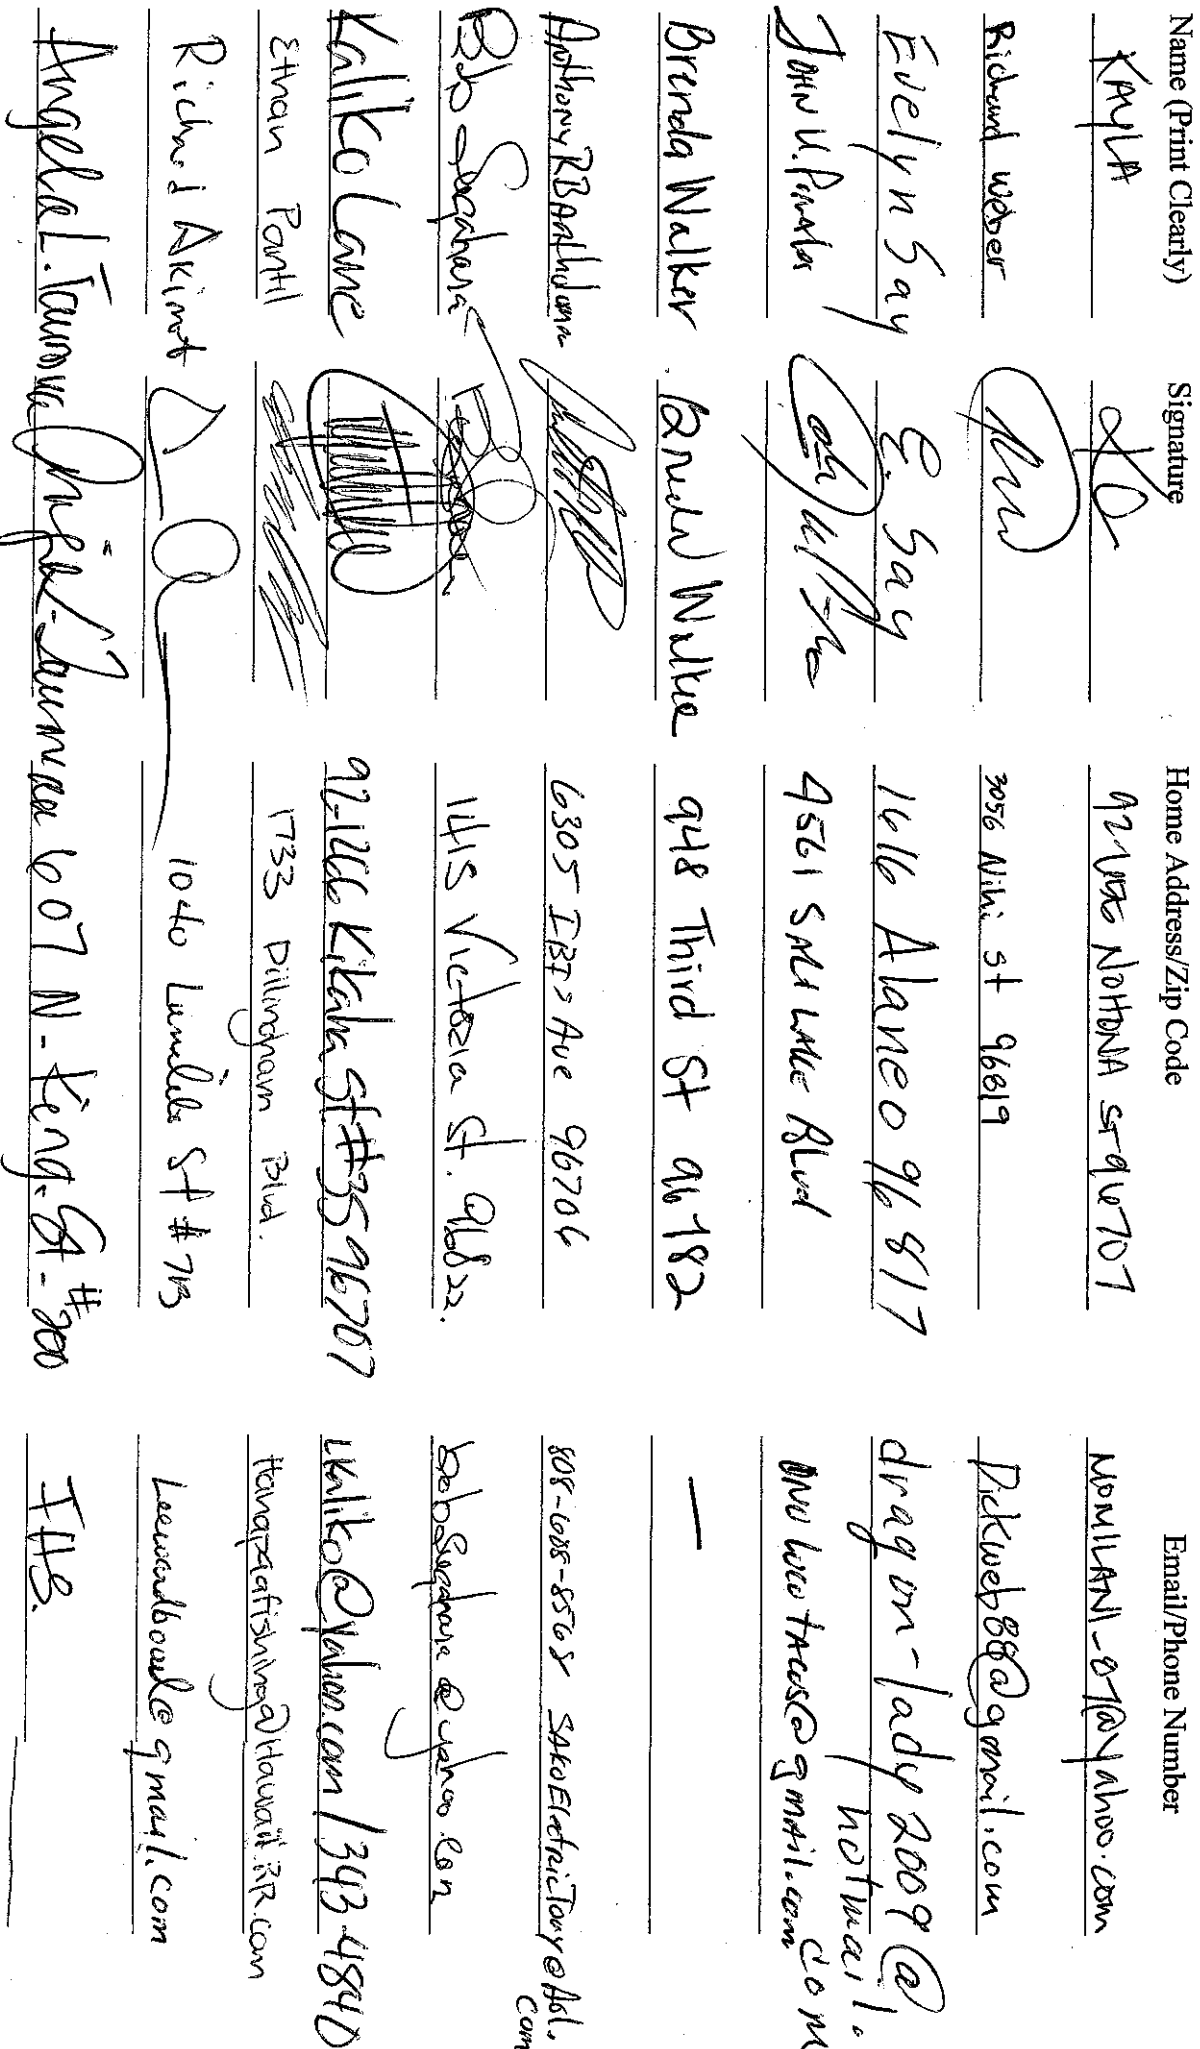 Name (Print Clearly) Signature Home Address/Zip Code Email/Phone Number
KAYLA NOHONA ST 96707 MOMILANI_07@yahoo.com
Richard Weber 3056 Nihi St 96819 Dickweb88@gmail.com
Evelyn Say E. Say 1616 Alaneo 96817 dragon-lady2009@hotmail.com
JOHN U. 4561 SALT LAKE BLvd
Brenda Walker 948 Third St 96782 —
Anthony R 6305 Ave 96706 SAKOElectricTony@AOL.com
Bob Sugahara 1415 Victoria St. 96822. bobsugahara@yahoo.com
Kaliko Lane 92-1266 Kikaha St #35 96707 LKaliko@yahoo.com / 343-4840
Ethan Pantil 1733 Dillingham Blvd. Hanapaafishing@Hawaii.RR.com
Richard 1040 St Leewardbowl@gmail.com
Angela L. 607 N. King. St. #200 IHS.